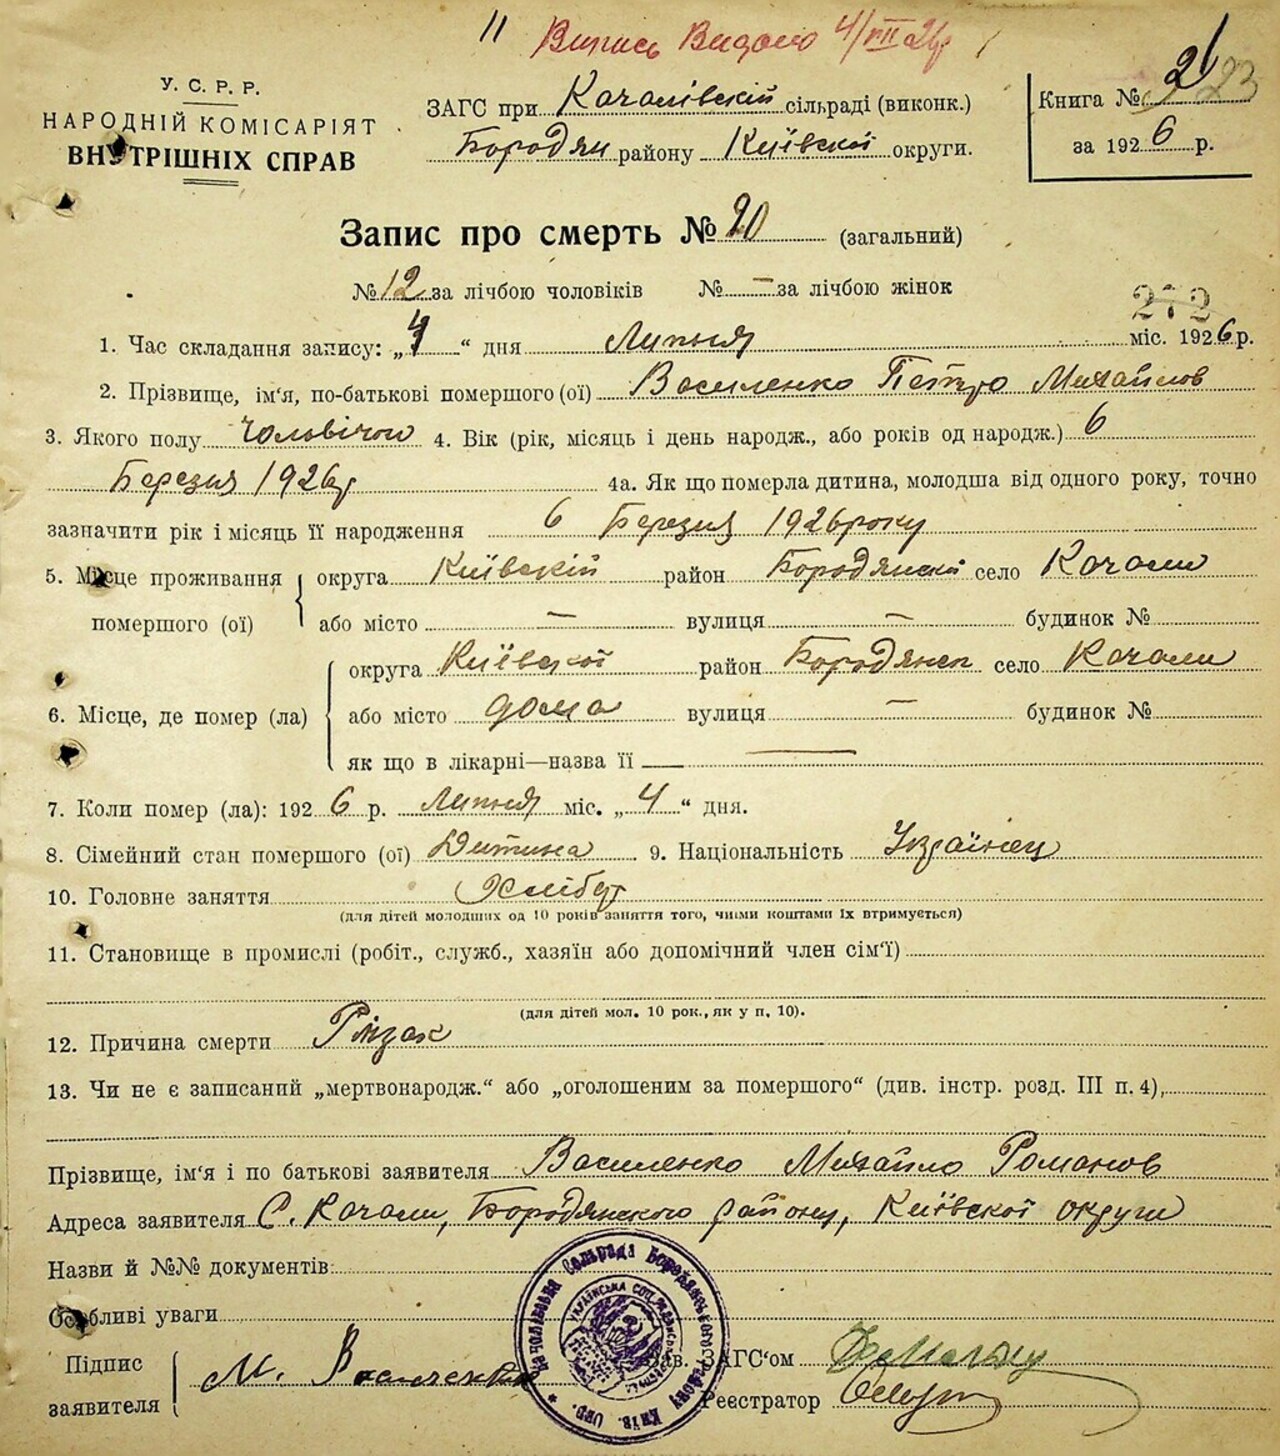 11 Випись Видано 4/VII 26р
У. С. Р. Р.
НАРОДНІЙ КОМІСАРІЯТ
ВНУТРІШНІХ СПРАВ
ЗАГС при Качалівскій сільраді (виконк.)
Бородян району Київскої округи.
Книга № 2
за 1926 р.
23
Запис про смерть № 20 (загальний)
№ 12 за лічбою чоловіків № — за лічбою жінок
272
1. Час складання запису: „4“ дня Липня міс. 1926 р.
2. Прізвище, ім‘я, по-батькові помершого (ої) Василенко Петро Михайлов
3. Якого полу Чольвічого 4. Вік (рік, місяць і день народж., або років од народж.) 6
Березня 1926р 4а. Як що померла дитина, молодша від одного року, точно
зазначити рік і місяць її народження 6 Березня 1926 року
5. Місце проживання помершого (ої) округа Київскій район Бородянскі село Качали
або місто — вулиця — будинок №
6. Місце, де помер (ла) округа Київскої район Бородянск село Качали
або місто дома вулиця — будинок №
як що в лікарні—назва її —
7. Коли помер (ла): 1926 р. Липня міс. „4“ дня.
8. Сімейний стан помершого (ої) Дитина 9. Національність Українец
10. Головне заняття Хлібор
(для дітей молодших од 10 років заняття того, чиїми коштами їх втримується)
11. Становище в промислі (робіт., служб., хазяїн або допомічний член сім‘ї)
(для дітей мол. 10 рок., як у п. 10).
12. Причина смерти Різак
13. Чи не є записаний „мертвонародж.“ або „оголошеним за помершого“ (див. інстр. розд. III п. 4),
Прізвище, ім‘я і по батькові заявителя Василенко Михайло Романов
Адреса заявителя С. Качали, Бородянского району, Київскої округи
Назви й №№ документів:
Особливі уваги
Підпис заявителя М. Василенко
Зав. ЗАГС‘ом
Реєстратор
Качалівська Сельрада Бородянського району Київ. окр.
УКРАЇНСЬКА СОЦ. РАДЯНСЬК